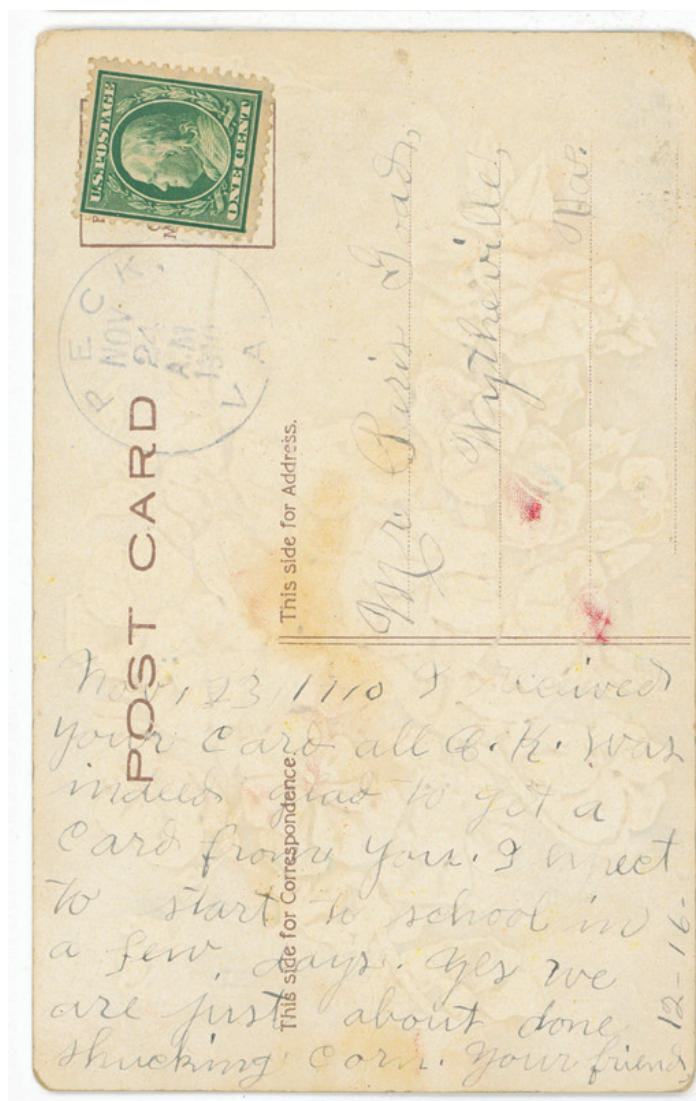 U.S. POSTAGE
ONE CENT
PECK,
NOV
24
A.M.
1910
VA.
POST CARD
This side for Address.
Mr Paris Goad,
Wytheville,
Va.
This side for Correspondence
Nov, 23, 1910 I received
your card all O.K. Was
indeed glad to get a
card from you. I expect
to start to school in
a few days. yes we
are just about done
shucking corn. Your friend
12-16-